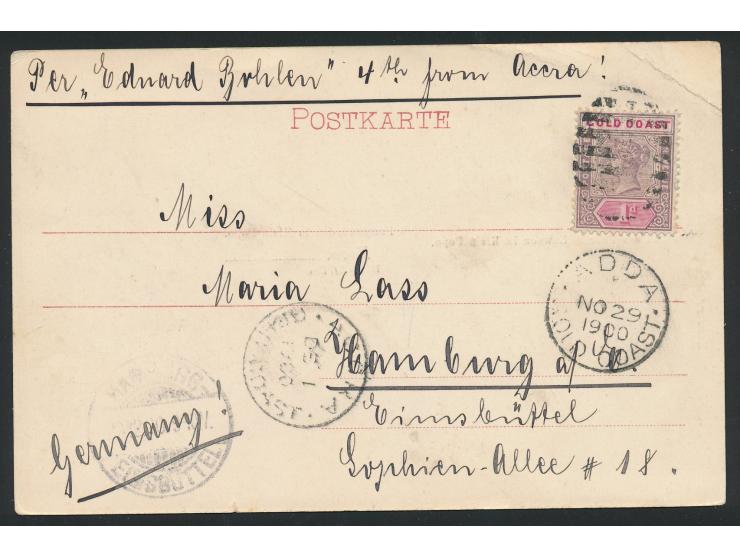 Per „Eduard Bohlen" 4th from Accra!
POSTKARTE
GOLD COAST
1d
Miss
Maria Lass
ADDA
NO 29
1900
GOLD COAST
ACCRA
DE 1
1900
GOLD COAST
Hamburg a/E.
Eimsbüttel
Sophien-Allee # 18.
Germany!
HAMBURG
EIMSBÜTTEL